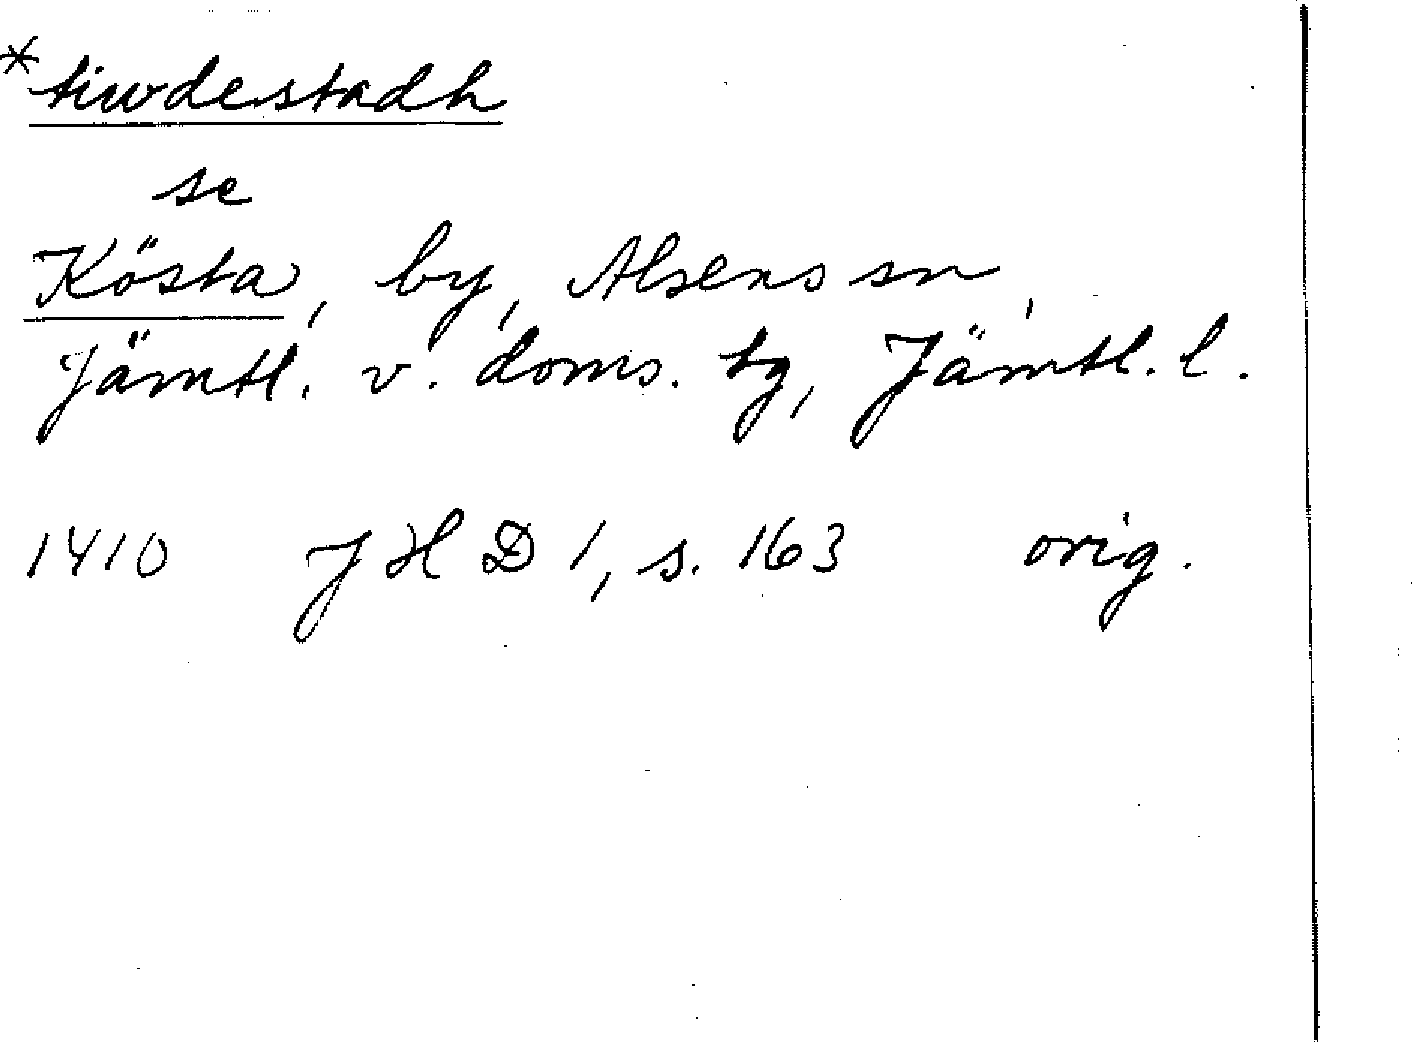 *tiwdestadh
se
Kösta, by, Alsens sn,
Jämtl. v. doms. tg, Jämtl. l.
1410 JHD 1, s. 163 orig.